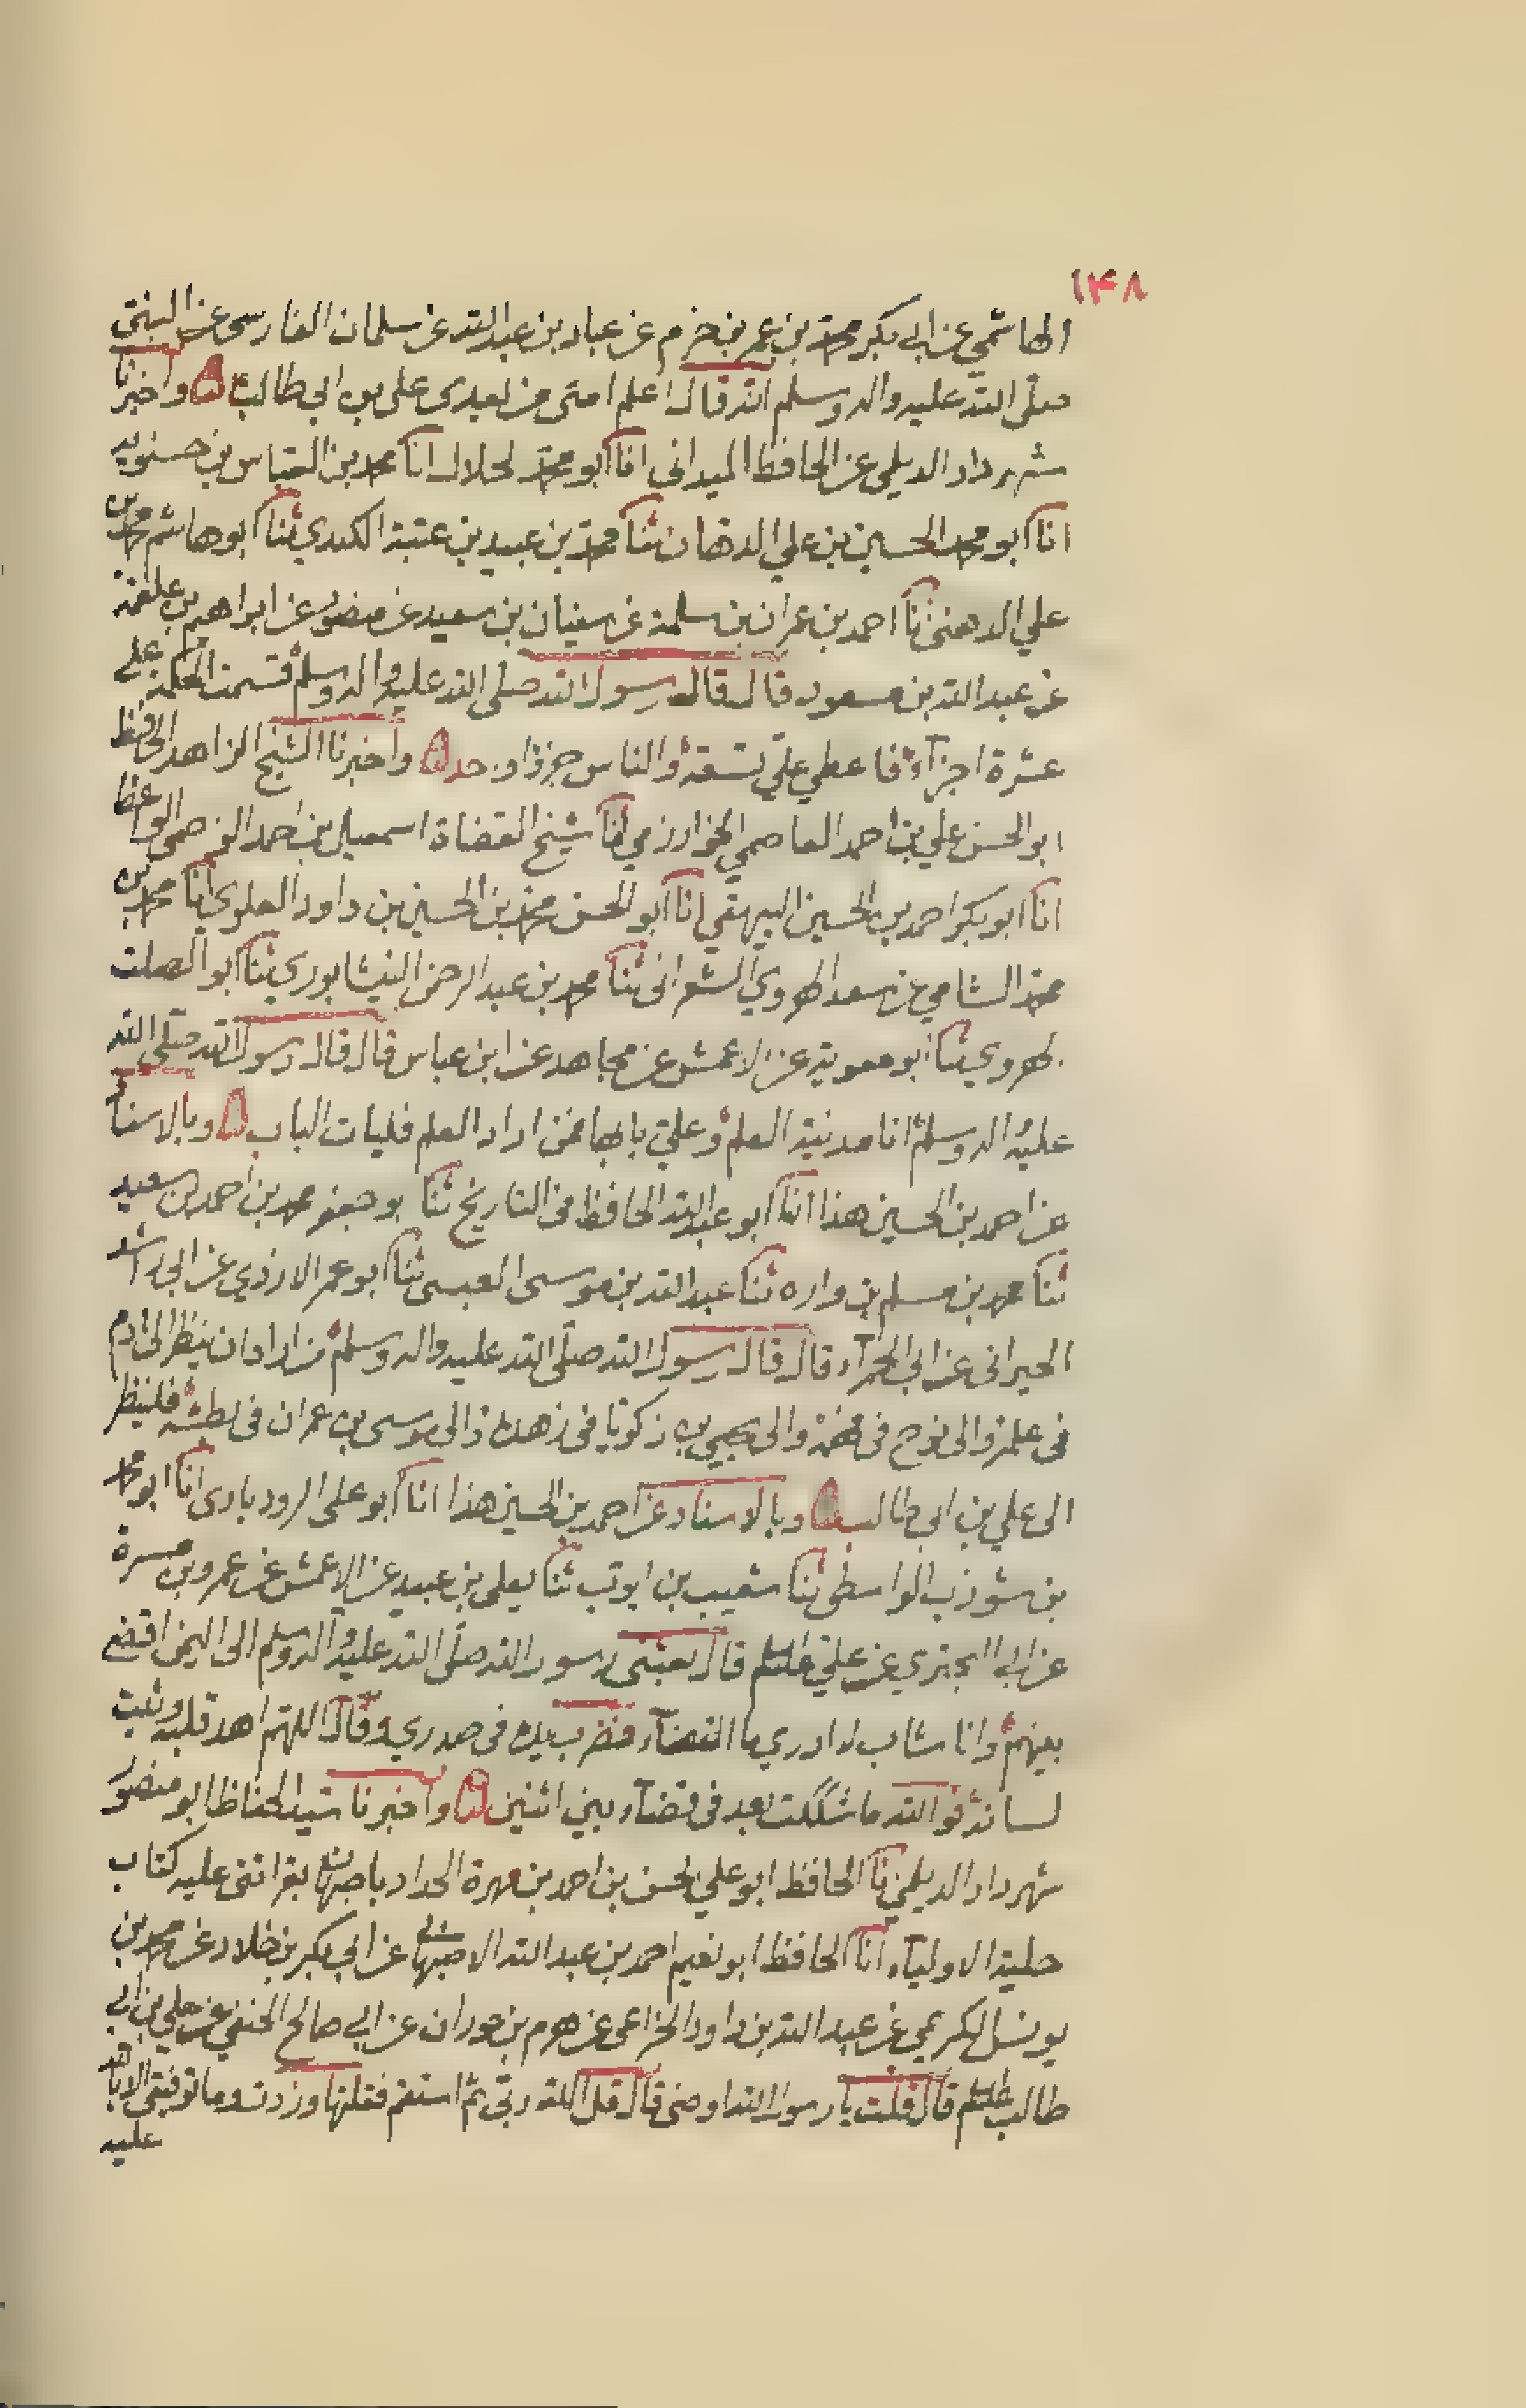 ۱۴۸
الهاشمي عن ابي بكر محمد بن عمر بن حزم عن عباد بن عبد الله عن سلمان الفارسى عن النبى
صلى الله عليه واله وسلم انه قال اعلم امتى من بعدى على بن ابي طالب واخبرنا
شهردار الديلمى عن الحافظ الميدانى انا ابو محمد لخلال انا محمد بن العباس بن حسنويه
انا ابو محمد الحسين بن علي الدهان ثنا محمد بن عبيد بن عتبة الكندي ثنا ابو هاشم محمد بن
علي الدهنى نا احمد بن عمران بن سلمة عن سفيان بن سعيد عن منصور عن ابراهيم بن علقمة
عن عبد الله بن مسعود قال قال رسول الله صلى الله عليه واله وسلم قسمت الحكمة على
عشرة اجزآء فاعطي علي تسعة والناس جزؤا واحد واخبرنا الشيخ الزاهد الحافظ
ابو الحسن علي بن احمد العاصمي الخوارزمي انا شيخ القضاة اسمعيل بن احمد الواعظ
انا ابو بكر احمد بن الحسين البيهقي انا ابو الحسن محمد بن الحسين بن داود العلوي انا محمد بن
محمد الشامي بن سعد الهروي الشعرانى ثنا محمد بن عبد الرحمن النيشابوري ثنا ابو الصلت
لهروي ثنا ابو معوية عن الاعمش عن مجاهد عن ابن عباس قال قال رسول الله صلى الله
عليه واله وسلم انا مدينة العلم وعلي بابها فمن اراد العلم فليات الباب وبالاسناد
عن احمد بن الحسين هذا انا ابو عبد الله الحافظ فى التاريخ ثنا بو جعفر محمد بن احمد بن سعيد
ثنا محمد بن مسلم بن واره ثنا عبد الله بن موسى العبسى ثنا ابو عمر الازدي عن ابى راشد
الحيرانى عن ابي الحمرآء قال قال رسول الله صلى الله عليه واله وسلم من اراد ان ينظر الى ادم
فى علمه والى نوح فى فهمه والى يحيى بن زكريا فى زهده والى موسى بن عمران فى بطشه فلينظر
الى علي بن ابي طالب وبالاسناد عن احمد بن الحسين هذا انا ابو على الرودبادى انا ابو محمد
بن شوذب الواسطى ثنا شعيب بن ايوب ثنا يعلى بن عبيد عن الاعمش عن عمرو بن مسرة
عن ابي البجترى عن علي قال بعثنى رسول الله صلى الله عليه واله وسلم الى اليمن اقضى
بينهم وانا شاب لا ادري ما القضآء فضرب بيده فى صدري وقال اللهم اهد قلبه وثبت
لسانه فوالله ما شككت بعد فى قضآء بين اثنين واخبرنا سيد الحفاظ ابو منصور
شهردار الديلمي نا الحافظ ابو علي لحسن بن احمد بن مهرة الحداد باصبهان بقرائتى عليه كتاب
حلية الاوليآء انا الحافظ ابو نعيم احمد بن عبد الله الاصبهانى عن ابي بكر بن خلاد عن محمد بن
يونس الكريمي عن عبد الله بن داود الخزاعى عن هرم بن حوران عن ابي صالح الحنفي عن علي بن ابي
طالب قال قلت يا رسول الله اوصنى قال قل الله ربى ثم استقم فقلتها وزدت وما توفيقى الا بالله
عليه